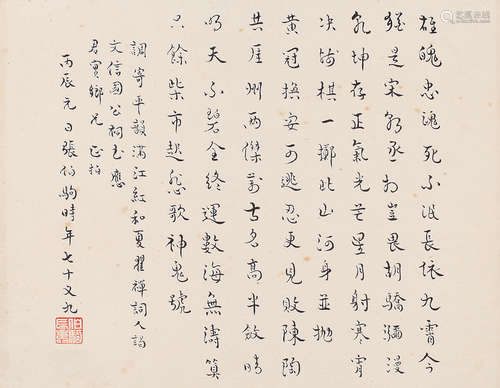 雄魄忠魂死不泯長依九霄今
猶是宋朝丞相豈畏胡驕瀰漫
乾坤存正氣光芒星月射寒宵
決棋一擲比山河身並拋
黃冠安可逃忍更見敗陳陶
共厓州兩傑萬古名高半晴
明天不碧全終運數海無濤算
只餘柴市起怨歌神鬼號
調寄平韻滿江紅和夏瞿禪詞人謁
文信國公祠玉應
君實鄉兄 正拍
丙辰元日張伯駒時年七十又九